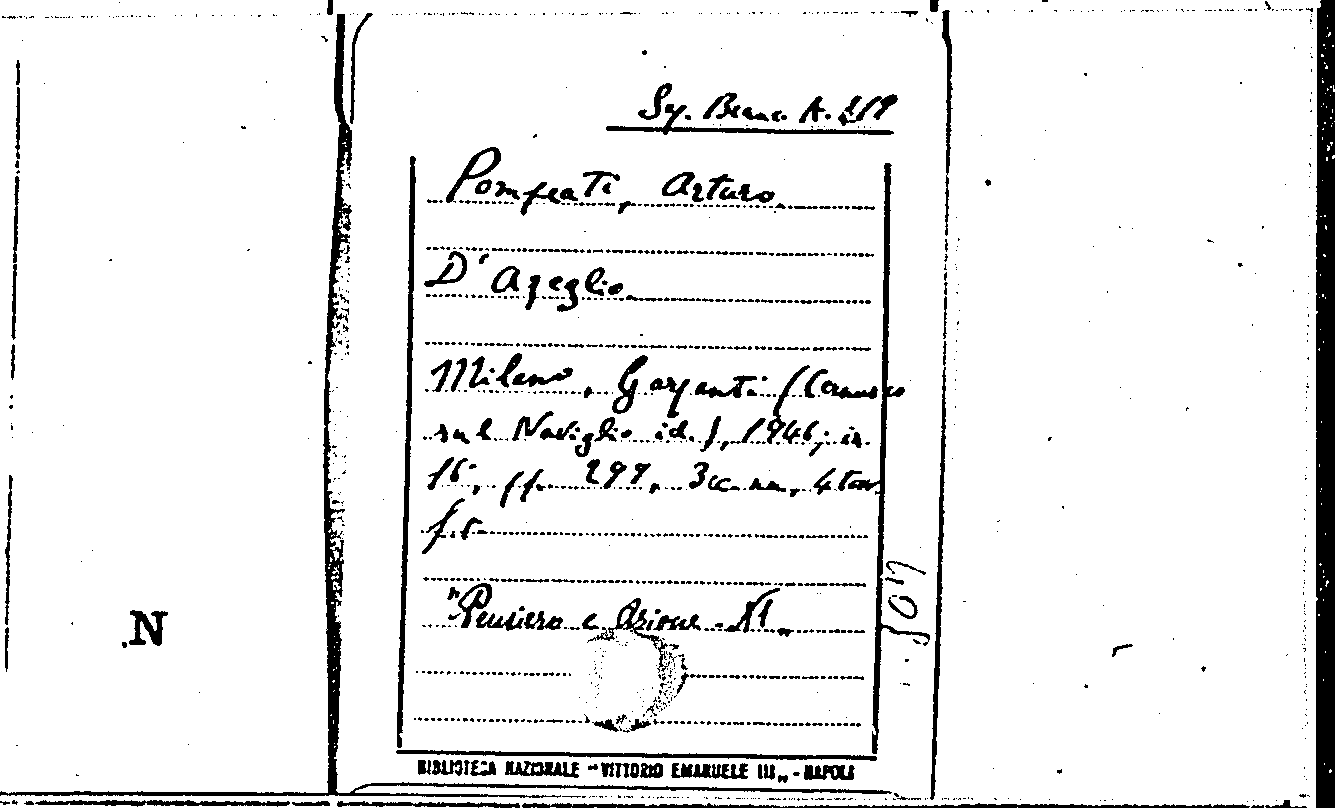 Sy. Branc. A. 219
Pompeati, Arturo.
D'Azeglio.
Milano, Garzanti (Cernusco
sul Naviglio id.), 1946; in
16, pp. 299, 3 cc. nn., 4 tav.
f.t.
"Pensiero e Azione - XI„
N
BIBLIOTECA NAZIONALE "VITTORIO EMANUELE III„ - NAPOLI